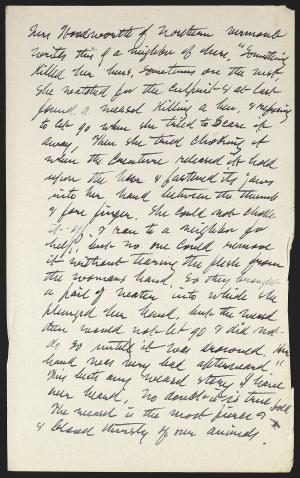 Mrs Woodworth of Northern Vermont
writes this of a neighbor of hers, "Something
killed her hens, sometimes on the nest,
she watched for the culprit & at last
found a weasel killing a hen, & refusing
to let go when she tried to scare it
away, then she tried choking it
when the creature released its hold
upon the hen & fastened its jaws
into her hand between the thumb
& fore finger. She could not choke
it off & ran to a neighbor for
help, but no one could remove
it without tearing the flesh from
the woman's hand. So they brought
a pail of water into which she
plunged her hand, but the weasel
even would not let go & did not
do so until it was drowned. Her
hand was very bad afterward."
This beats any weasel story I have
ever heard, no doubt it is true
The weasel is the most fierce & bold
& blood thirsty of our animals.